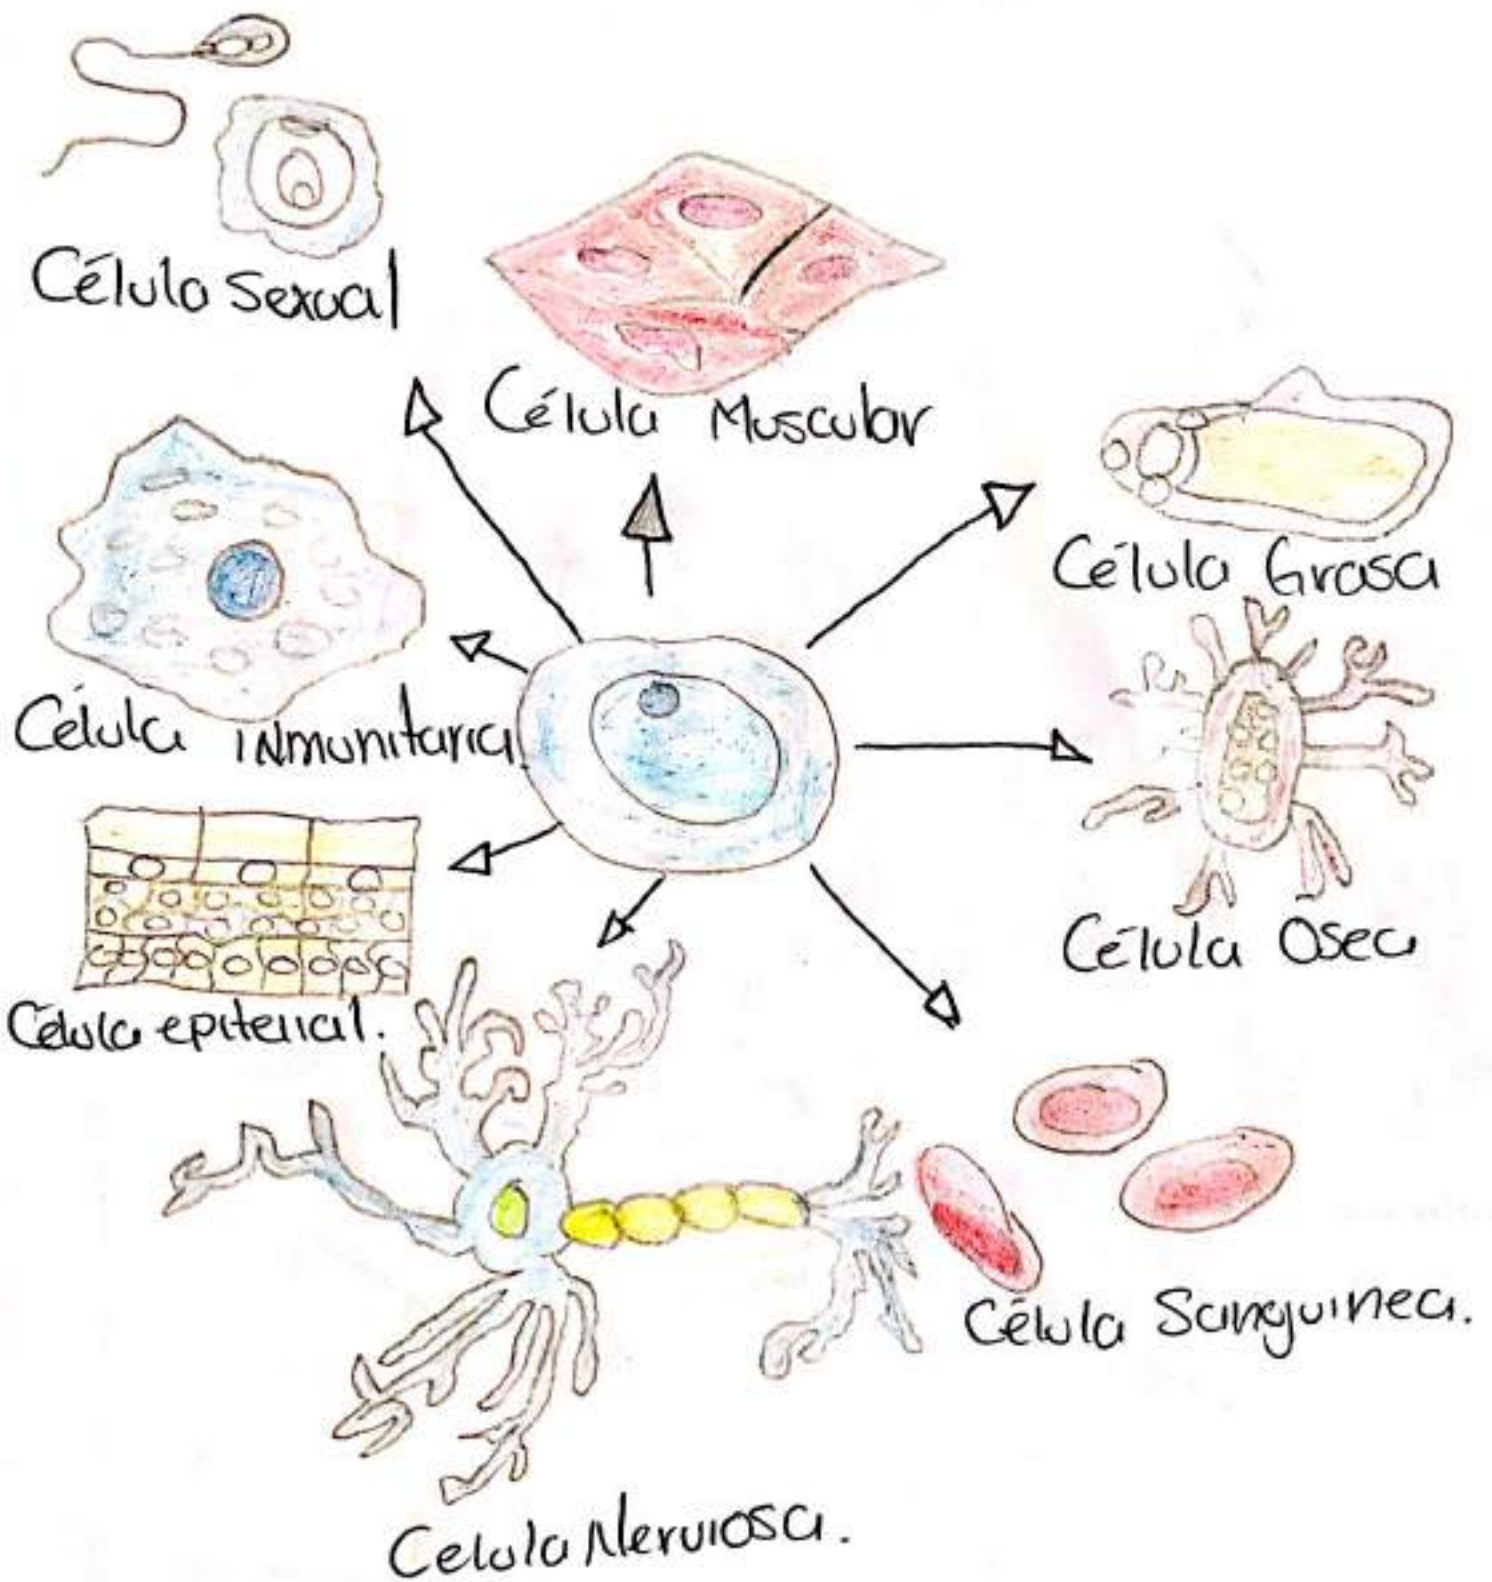 Célula Sexual
Célula Muscular
Célula Grasa
Célula inmunitaria.
Célula Ósea
Célula epitelial.
Célula Sanguinea.
Celula Nerviosa.